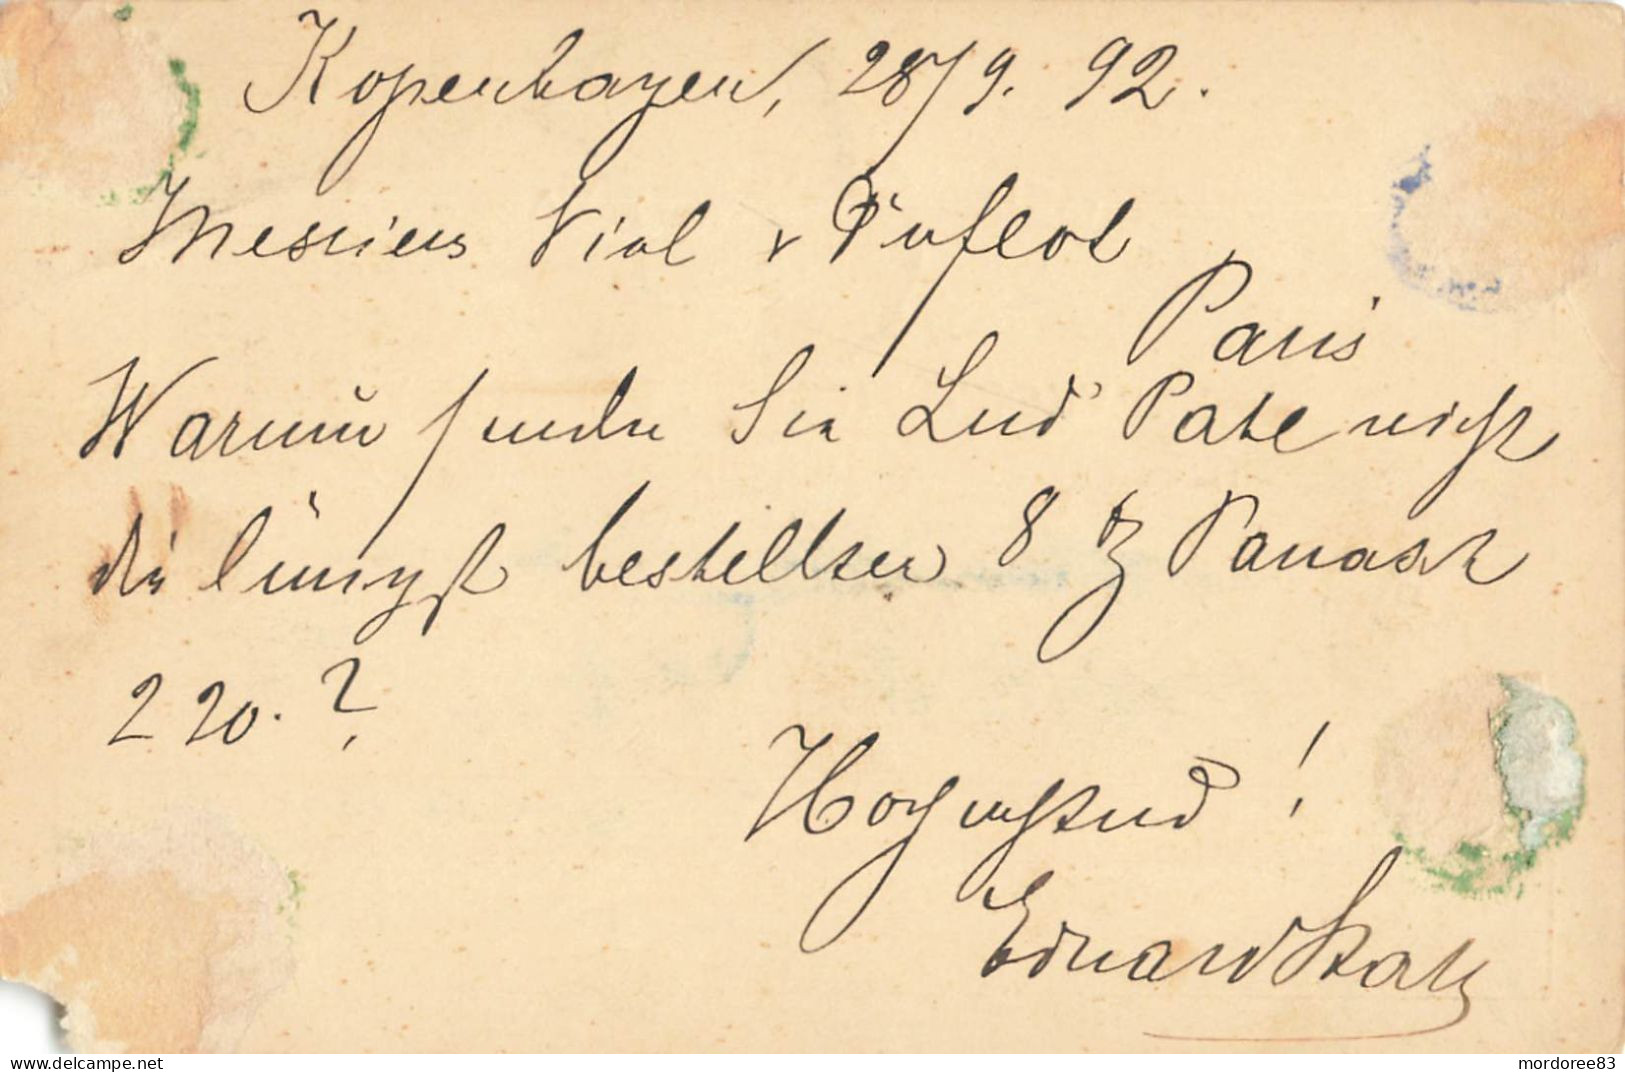 Kopenhagen, 28/9. 92.
Messieurs Vial & Duflot
Paris
Warum senden Sie Lud Pate nicht
die längst bestellten 8 Panasch
220.?
Hochachtend!
Eduard
www.delcampe.net
mordoree83